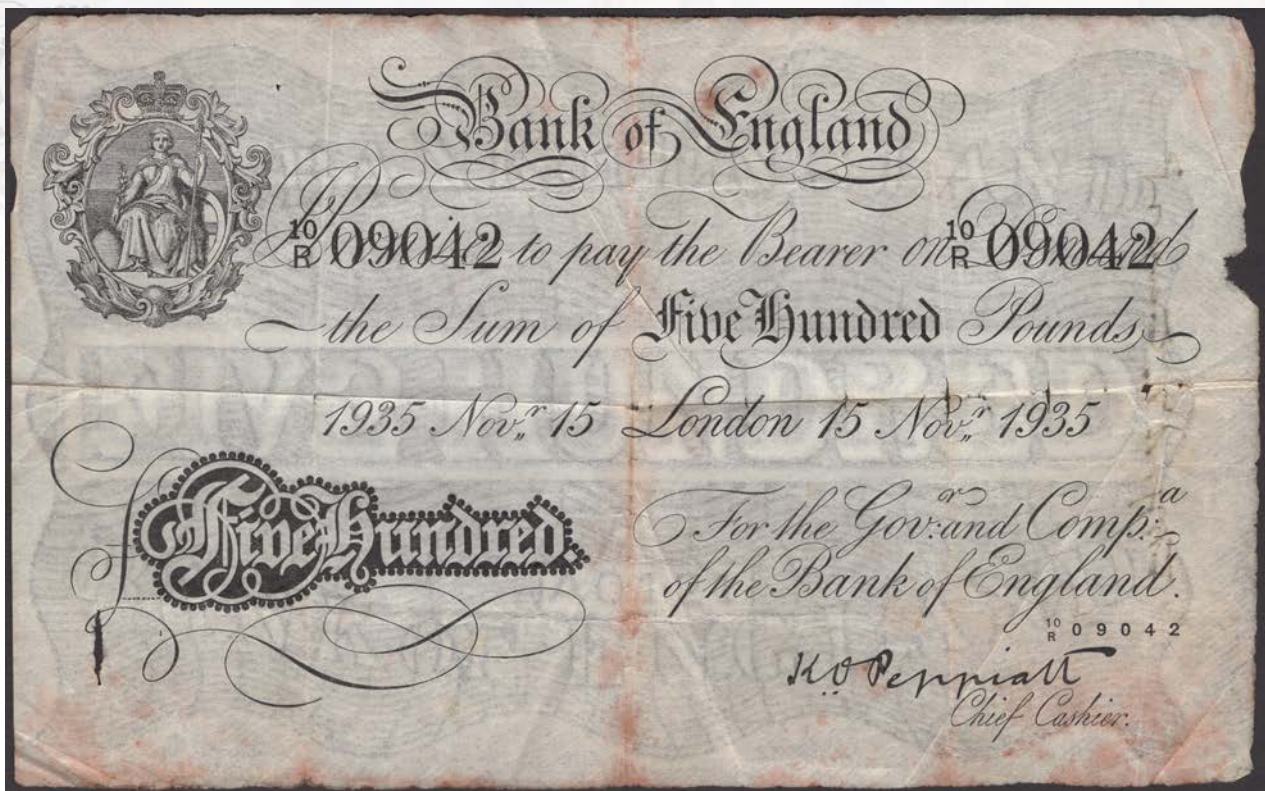 Bank of England
10/R 09042 10/R 09042
Promise to pay the Bearer on Demand
the Sum of Five Hundred Pounds
1935 Nov.r 15 London 15 Nov.r 1935
£Five Hundred. For the Gov:r and Comp:a
of the Bank of England.
10/R 09042
K O Peppiatt
Chief Cashier.